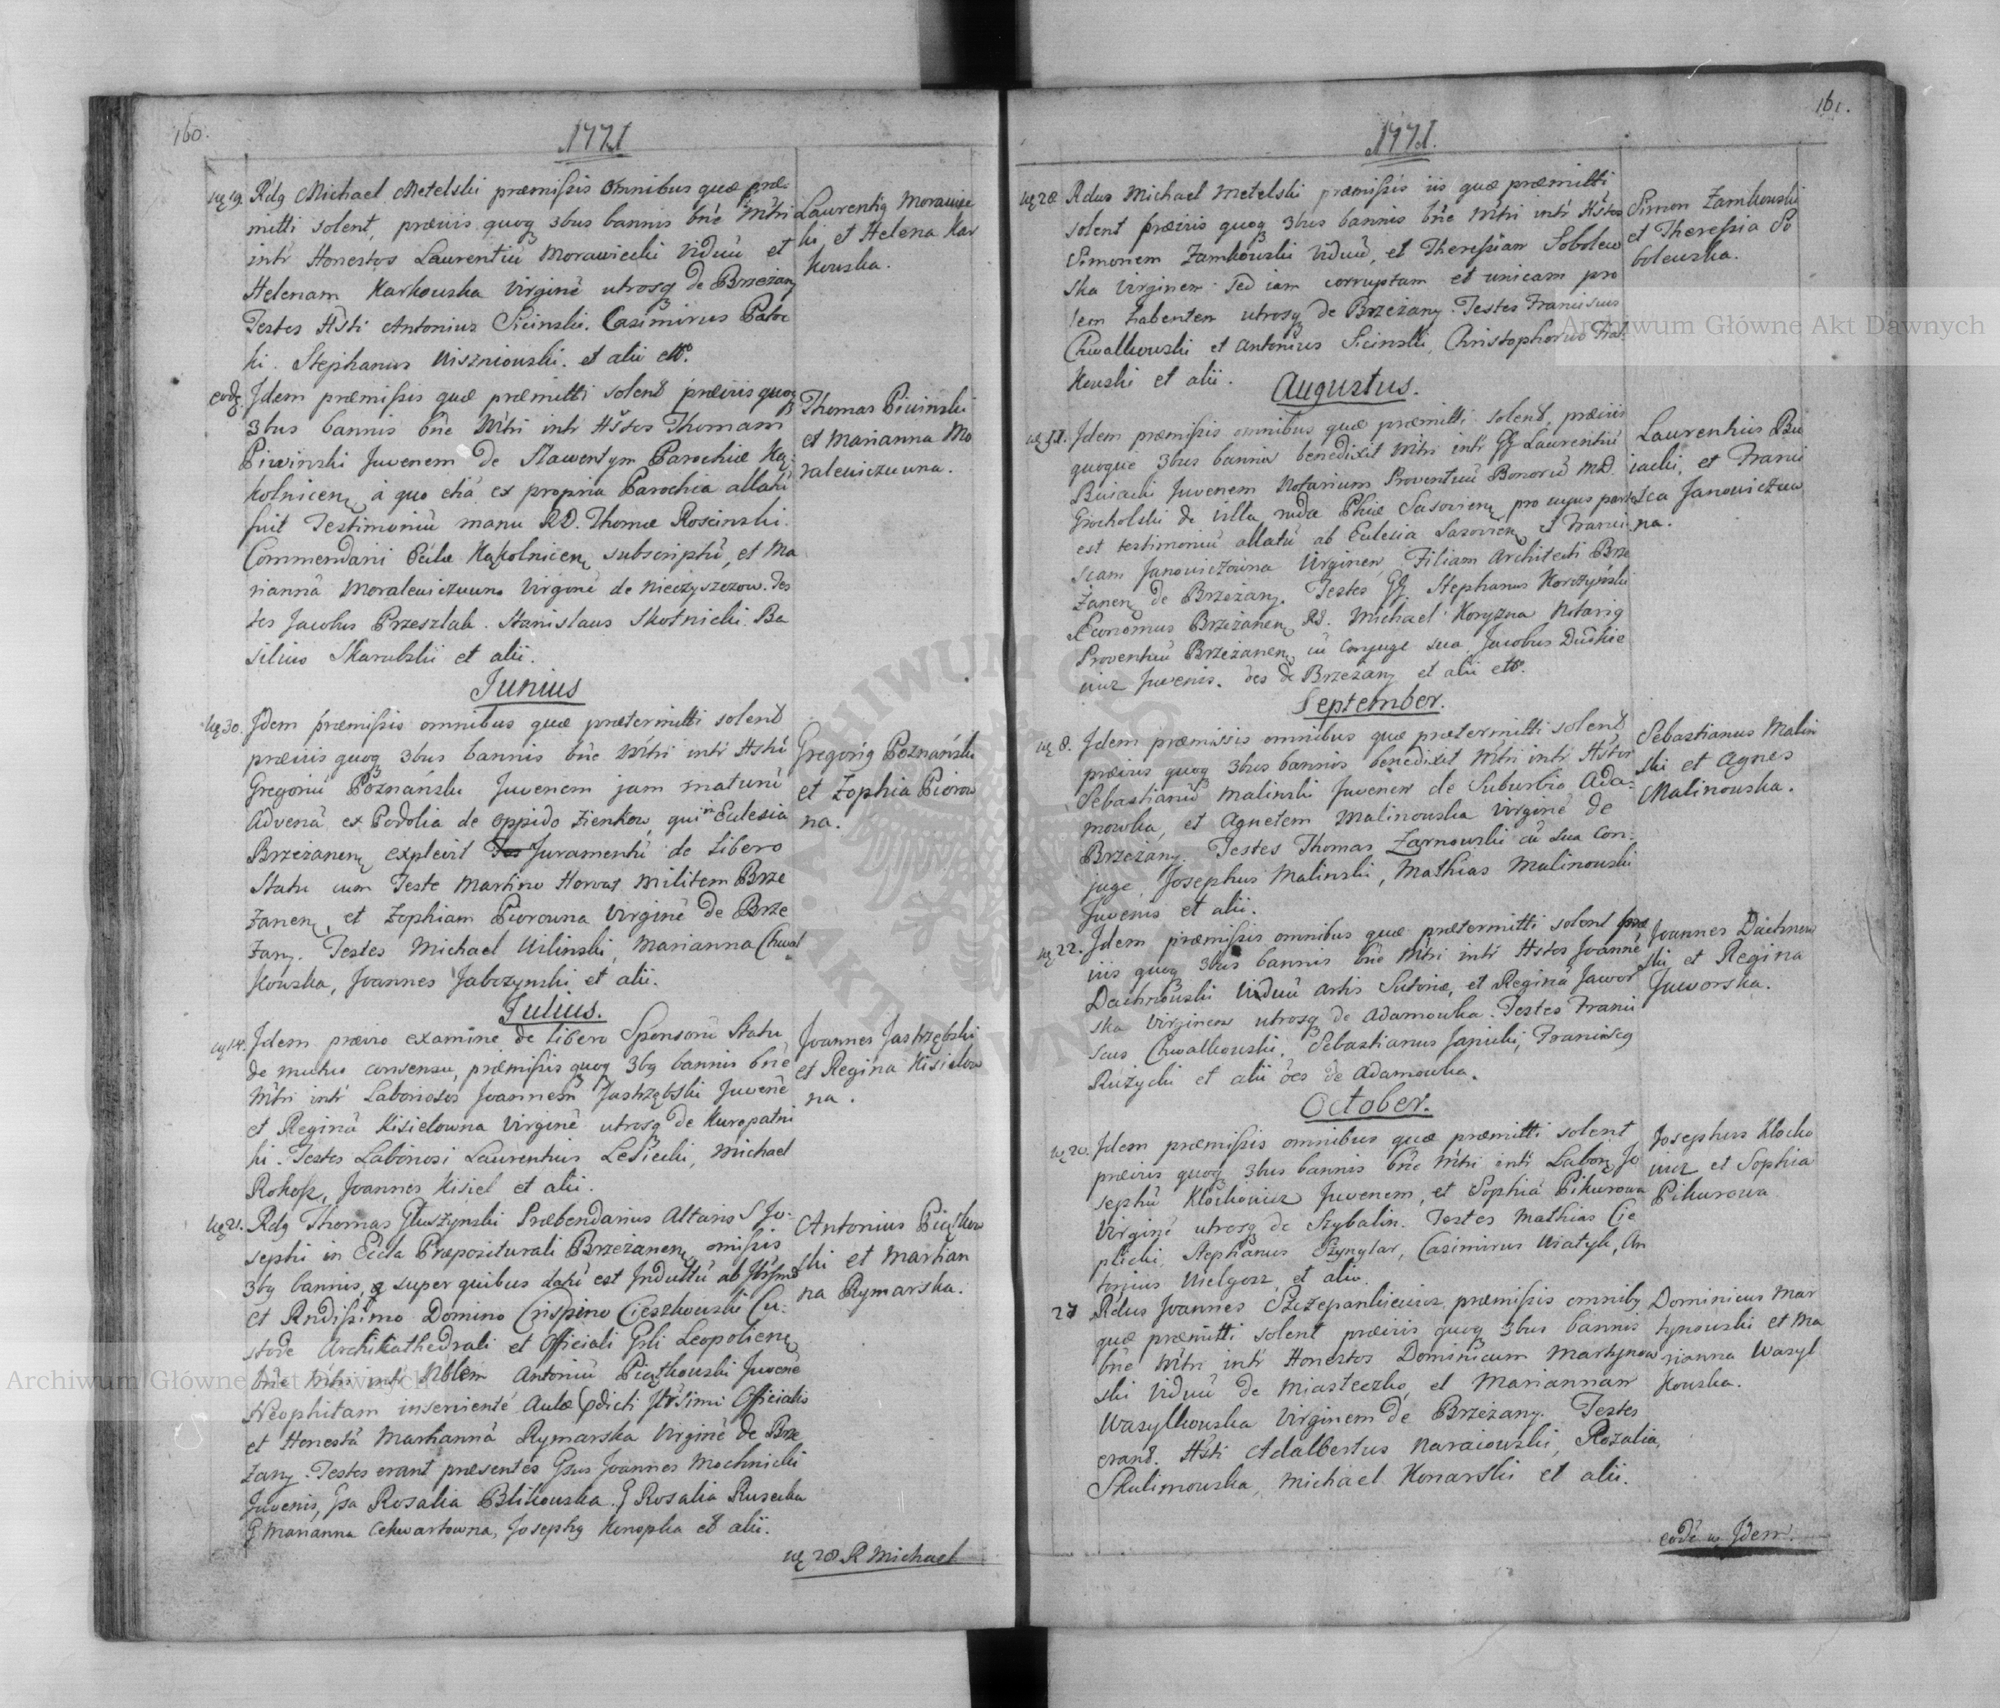 160.
1771
19. Rdg Michael Metelski præmissis omnibus quæ præ-
mitti solent, præviis quoq 3bus bannis bñe Mtri
intr Honestos Laurentiũ Morawiecki Viduũ et
Helenam Karkowska Virginẽ utrosq de Brzeżany
Testes Hsti Antonius Siciński. Casimirus Patoc
ki. Stephanus Wiszniowski. et alii ett.
Laurentig Morawiec
ki et Helena Kar
kowska.
eodẽ. Idem præmissis quæ præmitti solent præviis quoq
3bus bannis bñe Mtri intr Hstos Thomam
Piwinski Juvenem de Sławentyn Parochiæ Ką-
kolnicen à quo etiã ex propria Parochia allatũ
fuit Testimoniũ manu RD. Thomæ Roscinski
Commendarii Ecclæ Kąkolnicen subscriptũ, et Ma
riannã Moralewiczuwna Virginẽ de Nieczyszczow. Tes
tes Jacobus Przeszlak. Stanislaus Skotnicki. Ba
silius Skarubski et alii.
Thomas Piwinski
et Marianna Mo
ralewiczuwna.
Junius
30. Idem præmissis omnibus quæ prætermitti solent
præviis quoq 3bus bannis bñe Mtri intr Hstũ
Gregoriũ Poznański Juvenem jam maturũ
Advenã ex Podolia de oppido Zienkow, qui in Ecclesia
Brzeżanen explevit Juramentũ de Libero
Statu cum Teste Martino Horvat Militem Brze
żanen, et Zophiam Piorowna Virginẽ de Brze
żany. Testes Michael Wilinski, Marianna Chwal
kowska, Joannes Jabczynski et alii.
Gregorig Poznański
et Zophia Piorow
na.
Julius.
14. Idem prævio examine de Libero Sponsorũ Statu
de mutuo consensu, præmissis quoq 3bg bannis bñe
Mtri intr Laboriosos Joannem Jastrzębski Juvenẽ
et Reginã Kisielowna Virginẽ utrosq de Kuropatni
ki. Testes Laboriosi Laurentius Lesiecki, Michael
Rokosz, Joannes Kisiel et alii.
Joannes Jastrzębski
et Regina Kisielow
na.
21. Rdg Thomas Głuszynski Præbendarius Altaris S Jo-
sephi in Eccla Præpositurali Brzeżanen omissis
3bg bannis, super quibus datũ est Indultũ ab Illrsmo
et Rndissimo Domino Crispino Cieszkowski Cu-
stode Archikathedrali et Officiali Gñli Leopolien
bñe Mtri intr Nblem Antoniũ Piątkowski Juvenẽ
Neophitam inservientẽ Aulæ pdicti Illrsimi Officialis
et Honestã Mariannã Rymarska Virginẽ de Brze
żany. Testes erant præsentes Gsus Joannes Mochnicki
Juvenis, Gsa Rosalia Blikowska. G Rosalia Rusecka
G Marianna Cekwartowna, Josephg Konopka et alii.
Antonius Piątkow
ski et Marian
na Rymarska.
28 R Michael
161.
1771.
28. Rdus Michael Metelski præmissis iis quæ præmitti
solent præviis quoq 3bus bannis bñe Mtri intr Hstos
Simonem Zamkowski Viduũ, et Theressiam Sobolew
ska Virginem sed iam corruptam et unicam pro
lem habentem utrosq de Brzeżany. Testes Franciscus
Chwalkowski et Antonius Siciński, Christophorus Fral-
kowski et alii.
Simon Zamkowski
et Theressia So
bolewska.
Augustus.
11. Idem præmissis omnibus quæ præmitti solent, præviis
quoque 3bus bannis benedixit Mtri intr GG Laurentiũ
Buiacki Juvenem Notarium Proventuũ Bonorũ MD.
Grocholski de Villa ruda Phiæ Sasovien, pro cujus parte
est testimoniũ allatũ ab Ecclesia Sasovien, et Franci
scam Janowiczowna Virginem, Filiam Architecti Brze
żanen de Brzeżany. Testes GG. Stephanus Korczyński
Æconomus Brzeżanen, RS. Michael Koryzna Notarig
Proventuũ Brzeżanen, cũ Conjuge sua, Jacobus Duchie
wicz Juvenis. ões de Brzeżany et alii ett.
Laurentius Bu
iacki, et Franci
sca Janowiczow
na.
September.
8. Idem præmissis omnibus quæ prætermitti solent
præviis quoq 3bus bannis benedixit Mtri intr Hstos
Sebastianũ Malinski Juvenem de Suburbio Ada-
mowka, et Agnetem Malinowska Virginẽ de
Brzeżany. Testes Thomas Zarnowski cũ sua Con-
juge, Josephus Malinski, Mathias Malinowski
Juvenis et alii.
Sebastianus Malin
ski et Agnes
Malinowska.
22. Idem præmissis omnibus quæ prætermitti solent præ
viis quoq 3bus bannis bñe Mtri intr Hstos Joannẽ
Dachnowski Viduũ artis Sutoriæ, et Reginã Jawor
ska Virginem utrosq de Adamowka. Testes Franci
scus Chwalkowski, Sebastianus Janicki, Franciscg
Rużycki et alii ões de Adamowka.
Joannes Dachnow
ski et Regina
Jaworska.
October.
20. Idem præmissis omnibus quæ præmitti solent
præviis quoq 3bus bannis bñe Mtri intr Labor Jo
sephũ Klockowicz Juvenem, et Sophiã Pikurowa
Virginẽ utrosq de Szybalin. Testes Mathias Cie
plicki, Stephanus Szynglar, Casimirus Wiatyk, An
tonius Wielgosz, et alii.
Josephus Klocko
wicz et Sophia
Pikurowa
27 Rdus Joannes Szczepankiewicz præmissis omnibg
quæ præmitti solent præviis quoq 3bus bannis
bñe Mtri intr Honestos Dominicum Martynow
ski Viduũ de Miasteczko, et Mariannam
Wasylkowska Virginem de Brzeżany. Testes
erant. Hsti Adalbertus Naraiowski, Rozalia
Skulimowska, Michael Konarski et alii.
Dominicus Mar
tynowski et Ma
rianna Wasyl
kowska.
eodẽ Idem.
Archiwum Główne Akt Dawnych
Archiwum Główne Akt Dawnych